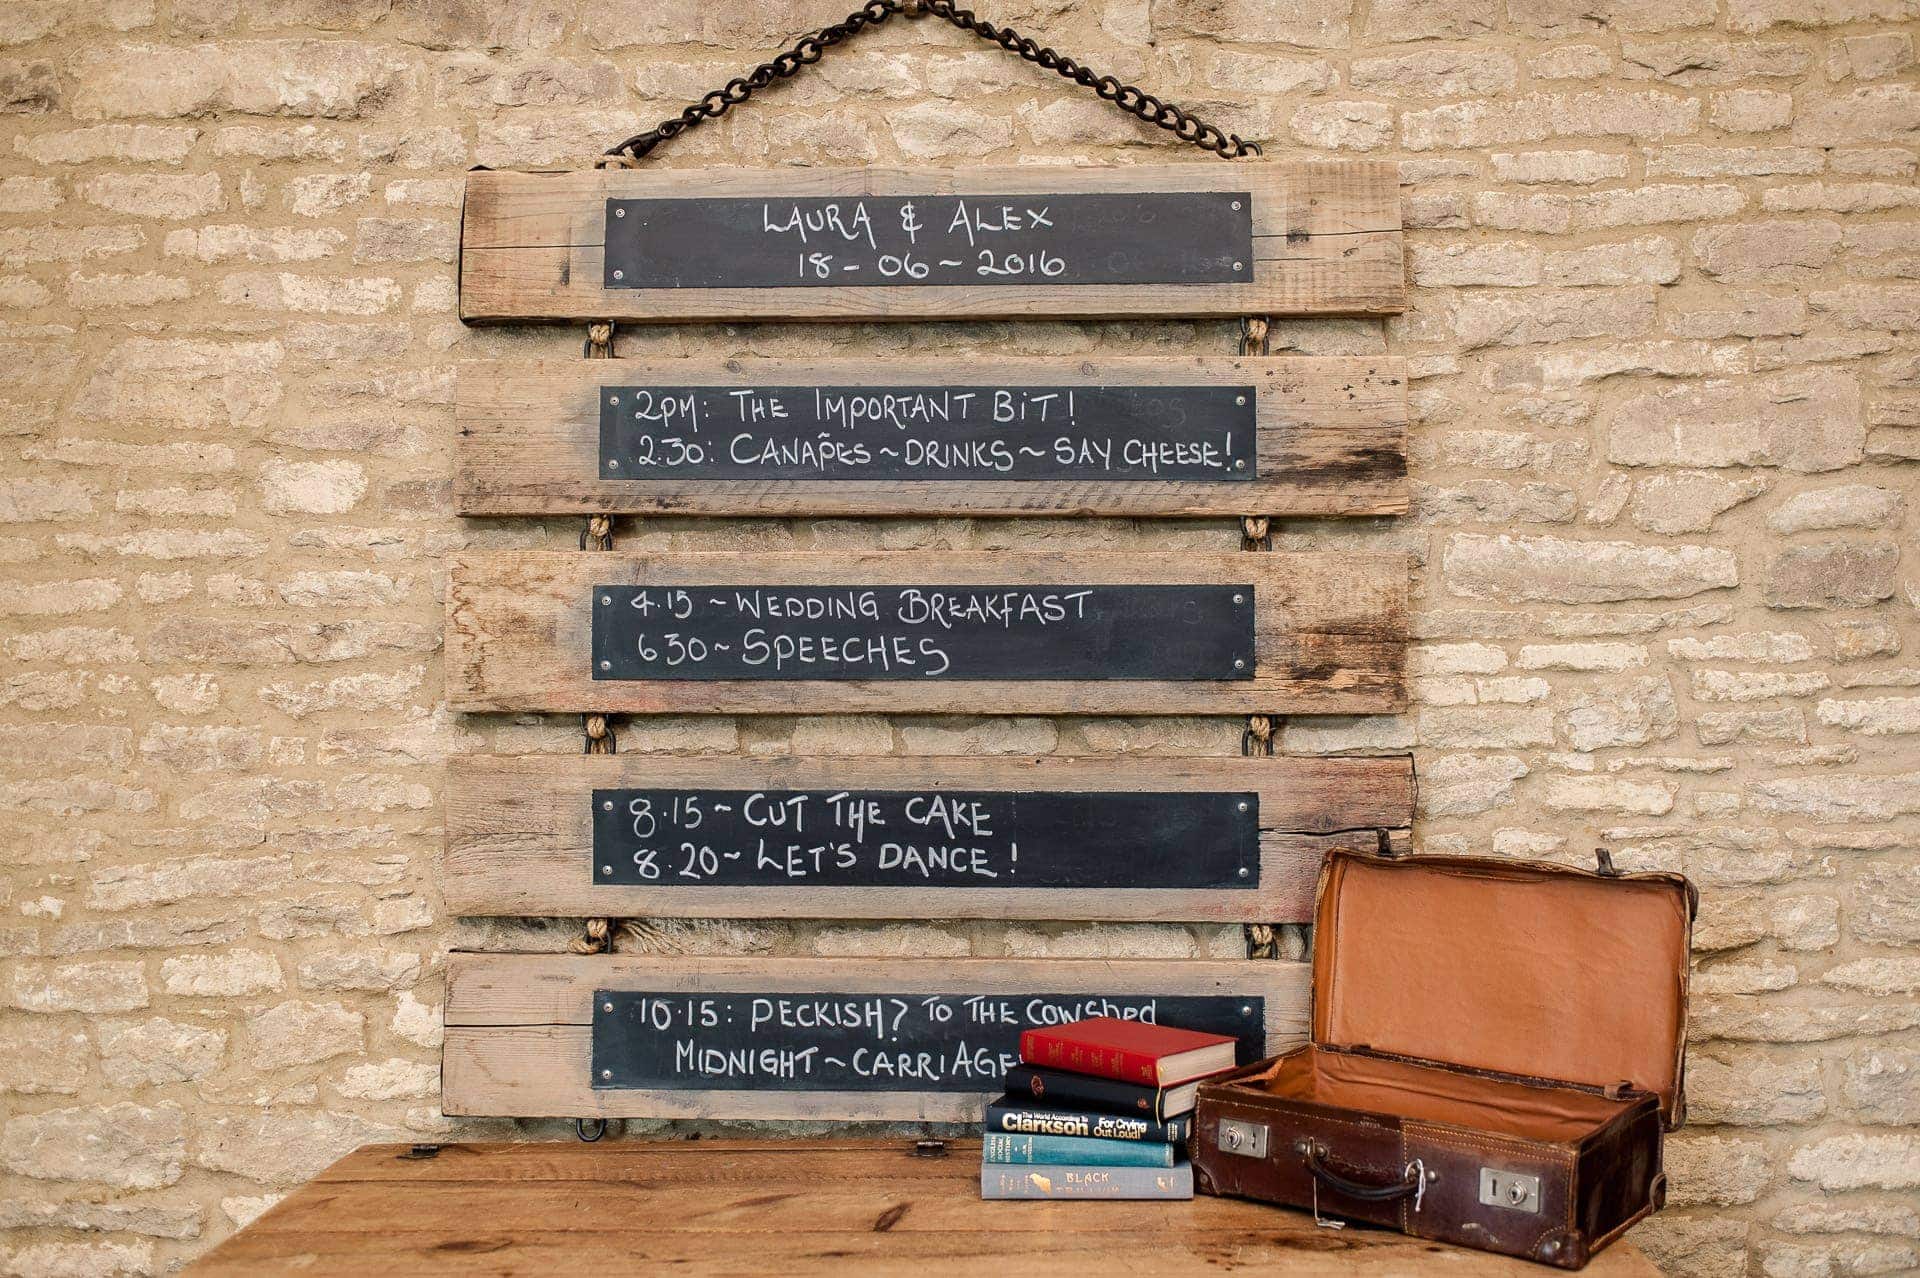 LAURA & ALEX
18-06~2016
2PM: THE IMPORTANT BiT!
2.30: CANAPẽS ~ DRINKS ~ SAY CHEESE!
4.15 ~ WEDDING BREAKFAST
630 ~ SPEECHES
8.15 ~ CUT THE CAKE
8.20 ~ LET'S DANCE!
10.15: PECKISH? TO THE COWShED
MIDNIGHT ~ CARRIAGE
The World According To
Clarkson
For Crying
Out Loud!
ENGLISH
SOCIAL
HISTORY
BLACK